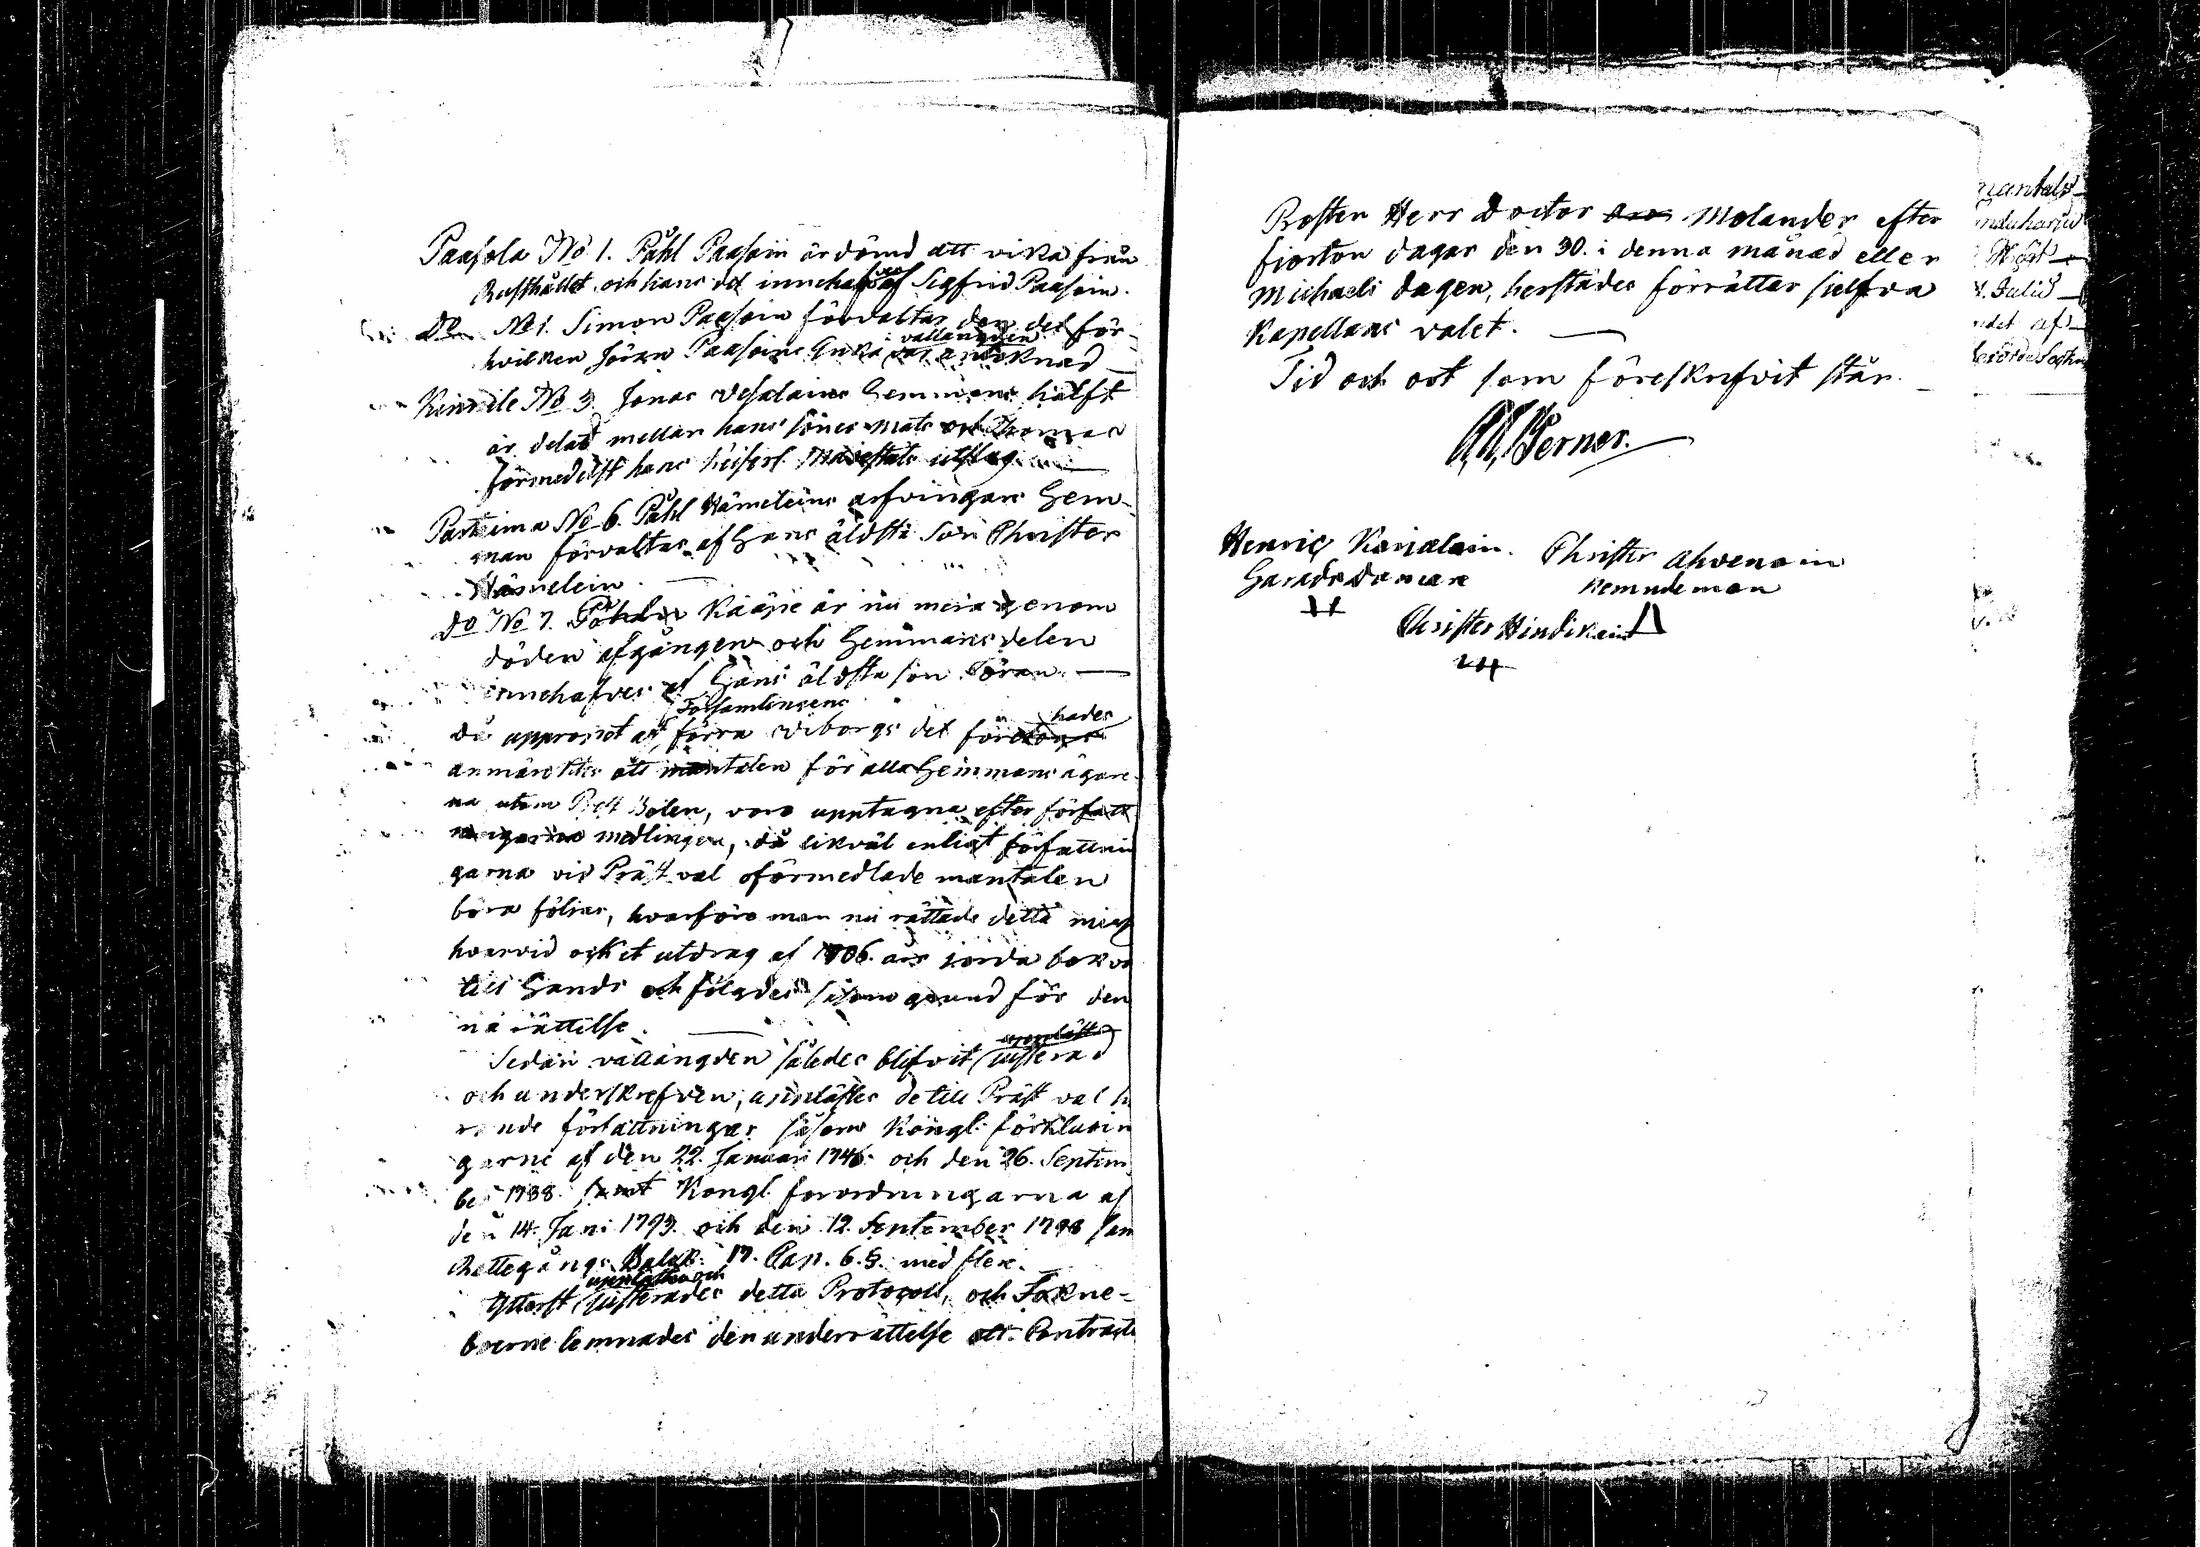 Paasola No 1. Påhl Paasoin är dömd att vika från
Rusthållet och hans del innehafves af Sigfrid Paasoin.
Do No 1. Simon Paasoin förvaltar den del för
hvilken Jöran Paasoins Enka i vallängden var antecknad
No 3. Jonas Hemmans hälft
är delad mellan hans söner Mats och Thomas
förmedelst hans Keiserl. Majestäts utslag
No 6. Påhl Hämeleins arfvingars Hem-
man förvaltas af Hans äldsta Son Christer
Hämelein.
Do No 7. Kääpie är nu mera genom
döden afgången och Hemmans delen
innehafves af Hans äldsta son Jöran.
Då upprorot af Församlingens förra Viborgs del förehades
anmärktes att mantalen för alla Hemmans ägare-
na utom Bolen, voro upptagna efter författ
medlingen, då likväl enligt författnin
garna vid Präst val oförmedlade mantalen
böra följas, hvarföre man nu rättade detta
hvarvid ock et utdrag af 1806. års jorda bok va
till Hands och följdes såsom grund för den
na rättelse.
Sedan vallängden således blifvit justerad
och underskrefven, upplästes de till Präst val h
rande författningar såsom Kongl. förklarin
garne af den 22. Januari 1746. och den 26. Septem
ber 1738. samt Kongl. forordningarna af
den 14. Juni 1793. och den 12. September 1798 sam
Rettegångs Balk. 17. Cap. 6. §. med flere.
Ytterst upplästes och justerades detta Protocoll, och Sokne-
boerne lemnades den underrättelse att Contracts
Prosten Herr Doctor Molander efter
fiorton dagar den 30. i denna månad eller
Michaeli dagen, herstädes förrättar sielfva
Kapellans valet.
Tid och ort som föreskrefvit står.
Henric Karialain. Christer Ahvenain
Häradsdomare Nemndeman
Christer Hindikain